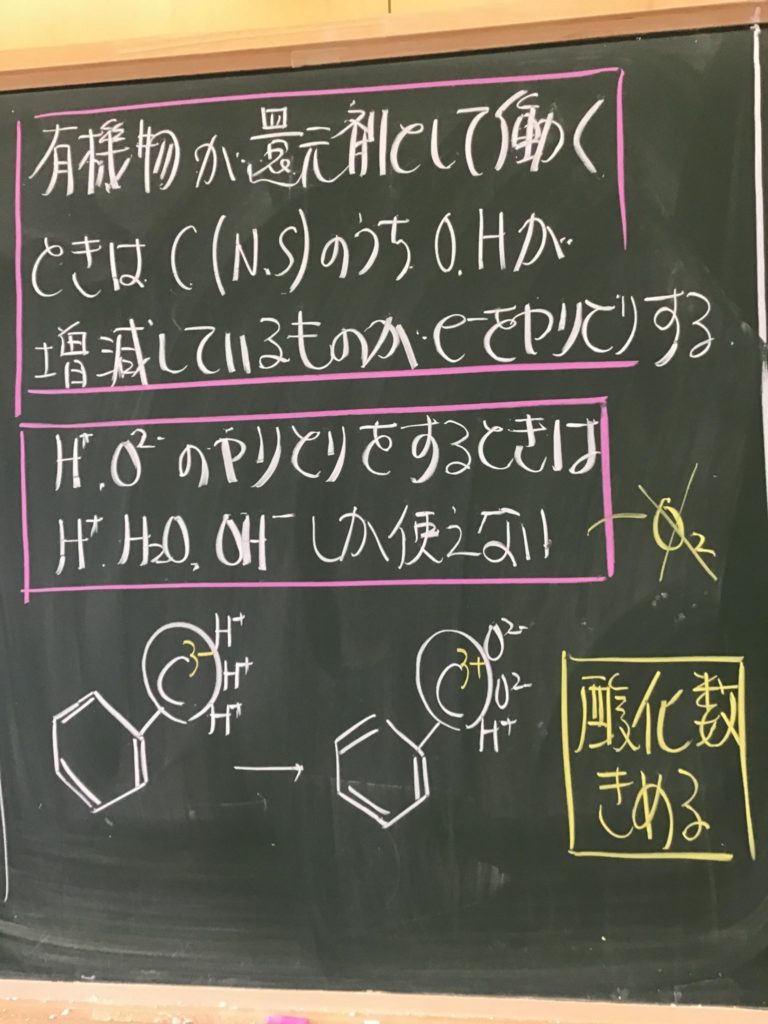 有機物が還元剤として働く
ときは C (N.S)のうち O.Hが
増減しているものがe⁻をやりとりする
H⁺.O²⁻ のやりとりをするときは
H⁺.H₂O.OH⁻ しか使えない
O₂
C 3- H⁺ H⁺ H⁺ → C 3+ O²⁻ O²⁻ H⁺
酸化数
きめる